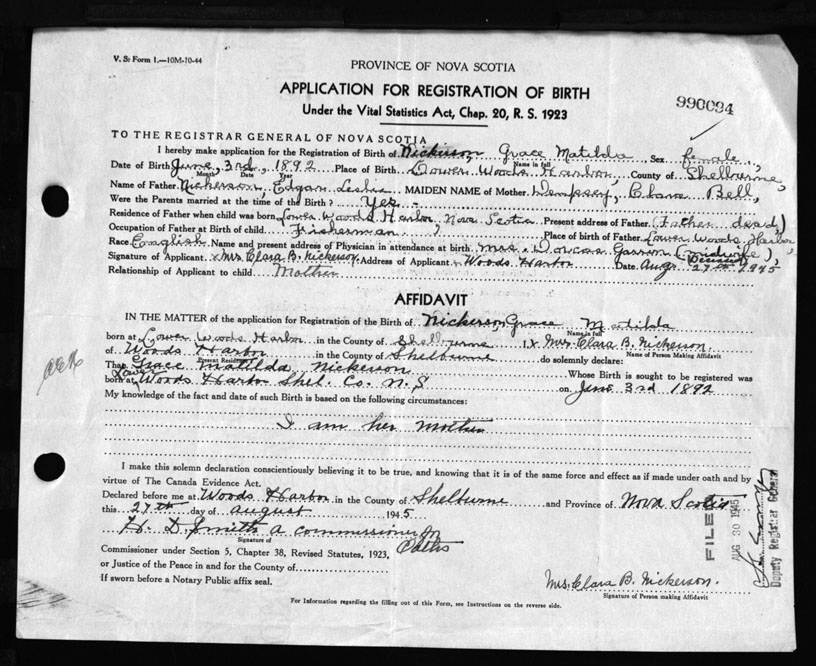 V. S. Form 1.—10M-10-44
PROVINCE OF NOVA SCOTIA
APPLICATION FOR REGISTRATION OF BIRTH
Under the Vital Statistics Act, Chap. 20, R. S. 1923
990094
TO THE REGISTRAR GENERAL OF NOVA SCOTIA
I hereby make application for the Registration of Birth of Nickerson, Grace Matilda, Sex female,
Name in full
Date of Birth June, 3rd, 1892 Place of Birth Lower Woods Harbor, County of Shelburne,
Month Date Year
Name of Father Nickerson, Edgar Leslie MAIDEN NAME of Mother Dempsey, Clara Bell,
Were the Parents married at the time of the Birth? Yes -
Residence of Father when child was born Lower Woods Harbor, Nova Scotia Present address of Father (Father dead)
Occupation of Father at Birth of child Fisherman, Place of birth of Father Lower Woods Harbor
Race English Name and present address of Physician in attendance at birth mrs. Dorcas Garron (midwife)
(Deceased)
Signature of Applicant x Mrs. Clara B. Nickerson Address of Applicant x Woods Harbor Date Aug. 27th 1945
Relationship of Applicant to child Mother
AFFIDAVIT
IN THE MATTER of the application for Registration of the Birth of Nickerson, Grace Matilda
Name in full
born at Lower Woods Harbor in the County of Shelburne I, x Mrs. Clara B. Nickerson.
Name of Person Making Affidavit
of Woods Harbor in the County of Shelburne do solemnly declare:
Present Residence
That Grace Matilda Nickerson Whose Birth is sought to be registered was
Lower
born at Woods Harbor Shel. Co. N. S on June 3rd 1892
My knowledge of the fact and date of such Birth is based on the following circumstances:
I am her mother
I make this solemn declaration conscientiously believing it to be true, and knowing that it is of the same force and effect as if made under oath and by
virtue of The Canada Evidence Act.
Declared before me at Woods Harbor in the County of Shelburne and Province of Nova Scotia
this 27th day of August 1945
H. D. Smith a commissioner for
Oaths
Signature of
Commissioner under Section 5, Chapter 38, Revised Statutes, 1923,
or Justice of the Peace in and for the County of
If sworn before a Notary Public affix seal.
Mrs. Clara B. Nickerson.
Signature of Person making Affidavit
For Information regarding the filling out of this Form, see Instructions on the reverse side.
FILED
AUG 30 1945
Deputy Registrar General